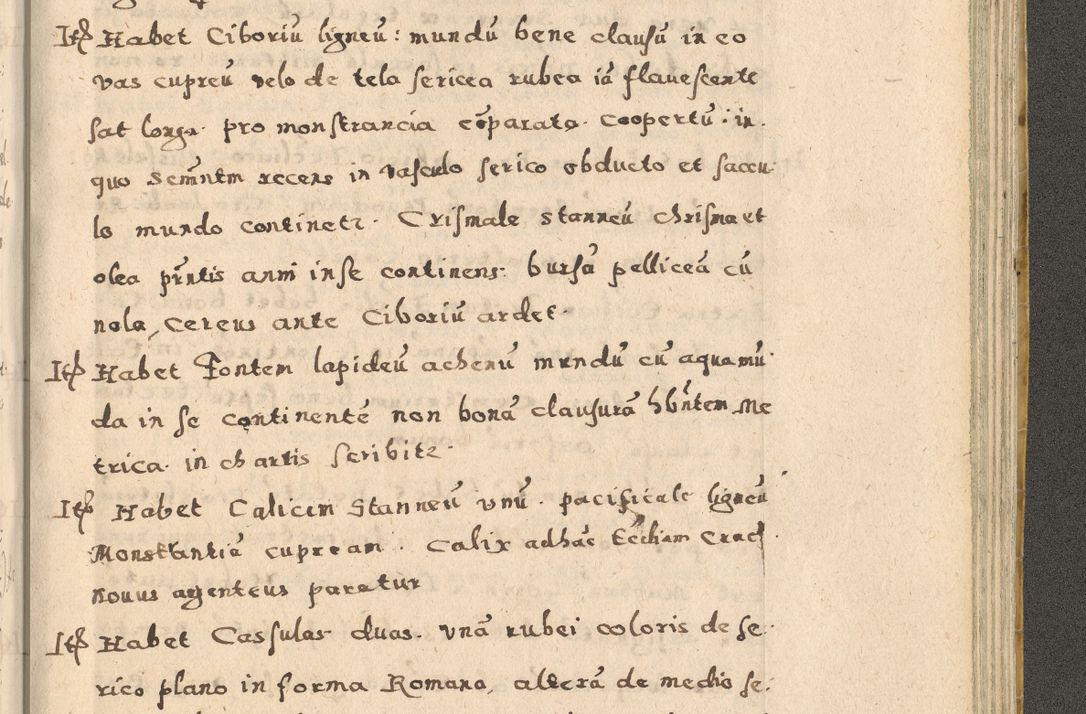 Itē Habet Ciboriū ligneū: mundū bene clausū in eo
vas cupreū velo de tela sericea rubea iā flauescente
sat longa. pro monstrancia cōparata. coopertū: in.
quo Scm̄ntm recens in vasculo serico obducto et saccu
lo mundo continetr. Crismale stanneū chrisma et
olea pr̄ntis anni in se continens. bursā pelliceā cū
nola, cereus ante Ciboriū ardet
Itē Habet Fontem lapideū achenū mundū cū aqua mū
da in se continentē non bonā clausurā hb̄ntem. Me
trica. in chartis scribitr.
Itē Habet Calicem Stanneū vnū. pacificale ligneū
Monstrantiā cupream. Calix ad hāc Eccliam Crac.
nouus argenteus paratur
Itē Habet Cassulas duas. vnā rubei coloris de se:
rico plano in forma Romana, alterā de medio se: